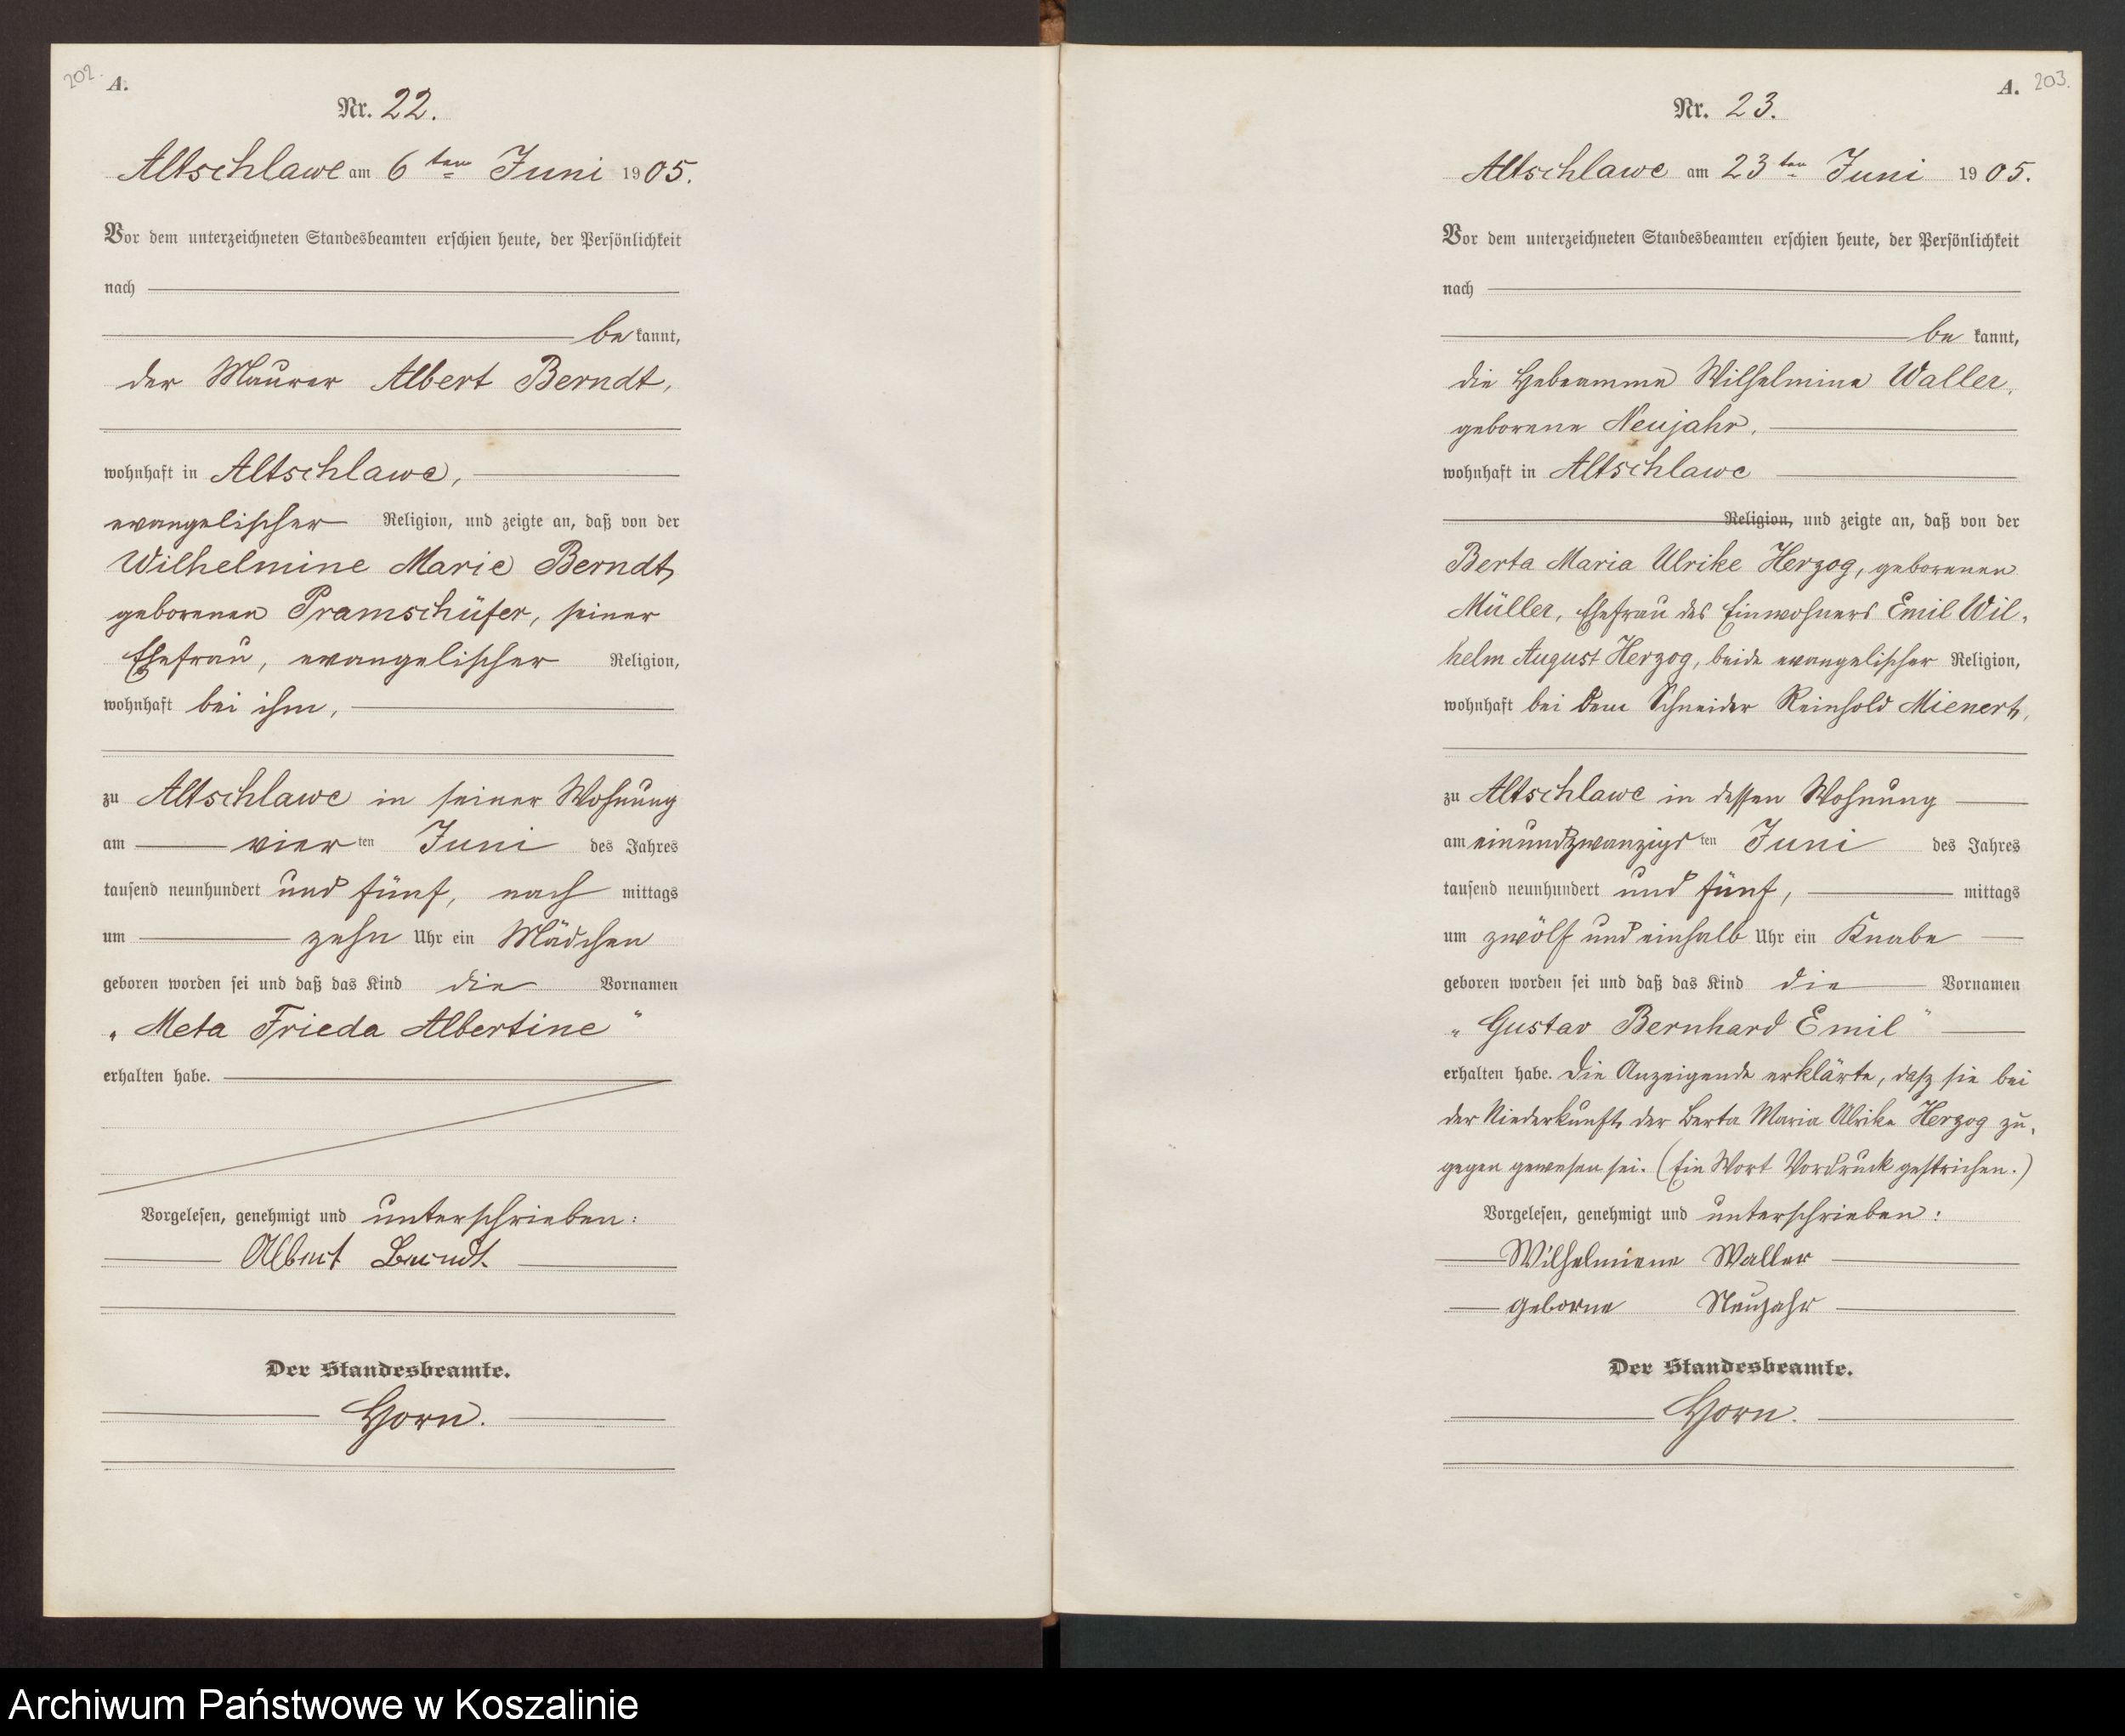 202.
A.
Nr. 22.
Altschlawe am 6ten Juni 1905.
Vor dem unterzeichneten Standesbeamten erschien heute, der Persönlichkeit
nach
be kannt,
der Maurer Albert Berndt,
wohnhaft in Altschlawe,
evangelischer Religion, und zeigte an, daß von der
Wilhelmine Marie Berndt,
geborenen Pramschüfer, seiner
Ehefrau, evangelischer Religion,
wohnhaft bei ihm,
zu Altschlawe in seiner Wohnung
am vierten Juni des Jahres
tausend neunhundert und fünf, nach mittags
um zehn Uhr ein Mädchen
geboren worden sei und daß das Kind die Vornamen
„Meta Frieda Albertine“
erhalten habe.
Vorgelesen, genehmigt und unterschrieben:
Albert Berndt.
Der Standesbeamte.
Horn.
A. 203.
Nr. 23.
Altschlawe am 23ten Juni 1905.
Vor dem unterzeichneten Standesbeamten erschien heute, der Persönlichkeit
nach
be kannt,
die Hebeamme Wilhelmine Waller,
geborene Neujahr,
wohnhaft in Altschlawe
Religion, und zeigte an, daß von der
Berta Maria Ulrike Herzog, geborenen
Müller, Ehefrau des Einwohners Emil Wil-
helm August Herzog, beide evangelischer Religion,
wohnhaft bei dem Schneider Reinhold Mienert,
zu Altschlawe in dessen Wohnung
am einundzwanzigsten Juni des Jahres
tausend neunhundert und fünf, mittags
um zwölf und einhalb Uhr ein Knabe
geboren worden sei und daß das Kind die Vornamen
„Gustav Bernhard Emil“
erhalten habe. Die Anzeigende erklärte, daß sie bei
der Niederkunft der Berta Maria Ulrike Herzog zu-
gegen gewesen sei. (Ein Wort Vordruck gestrichen.)
Vorgelesen, genehmigt und unterschrieben:
Wilhelmiene Waller
geborne Neujahr
Der Standesbeamte.
Horn.
Archiwum Państwowe w Koszalinie